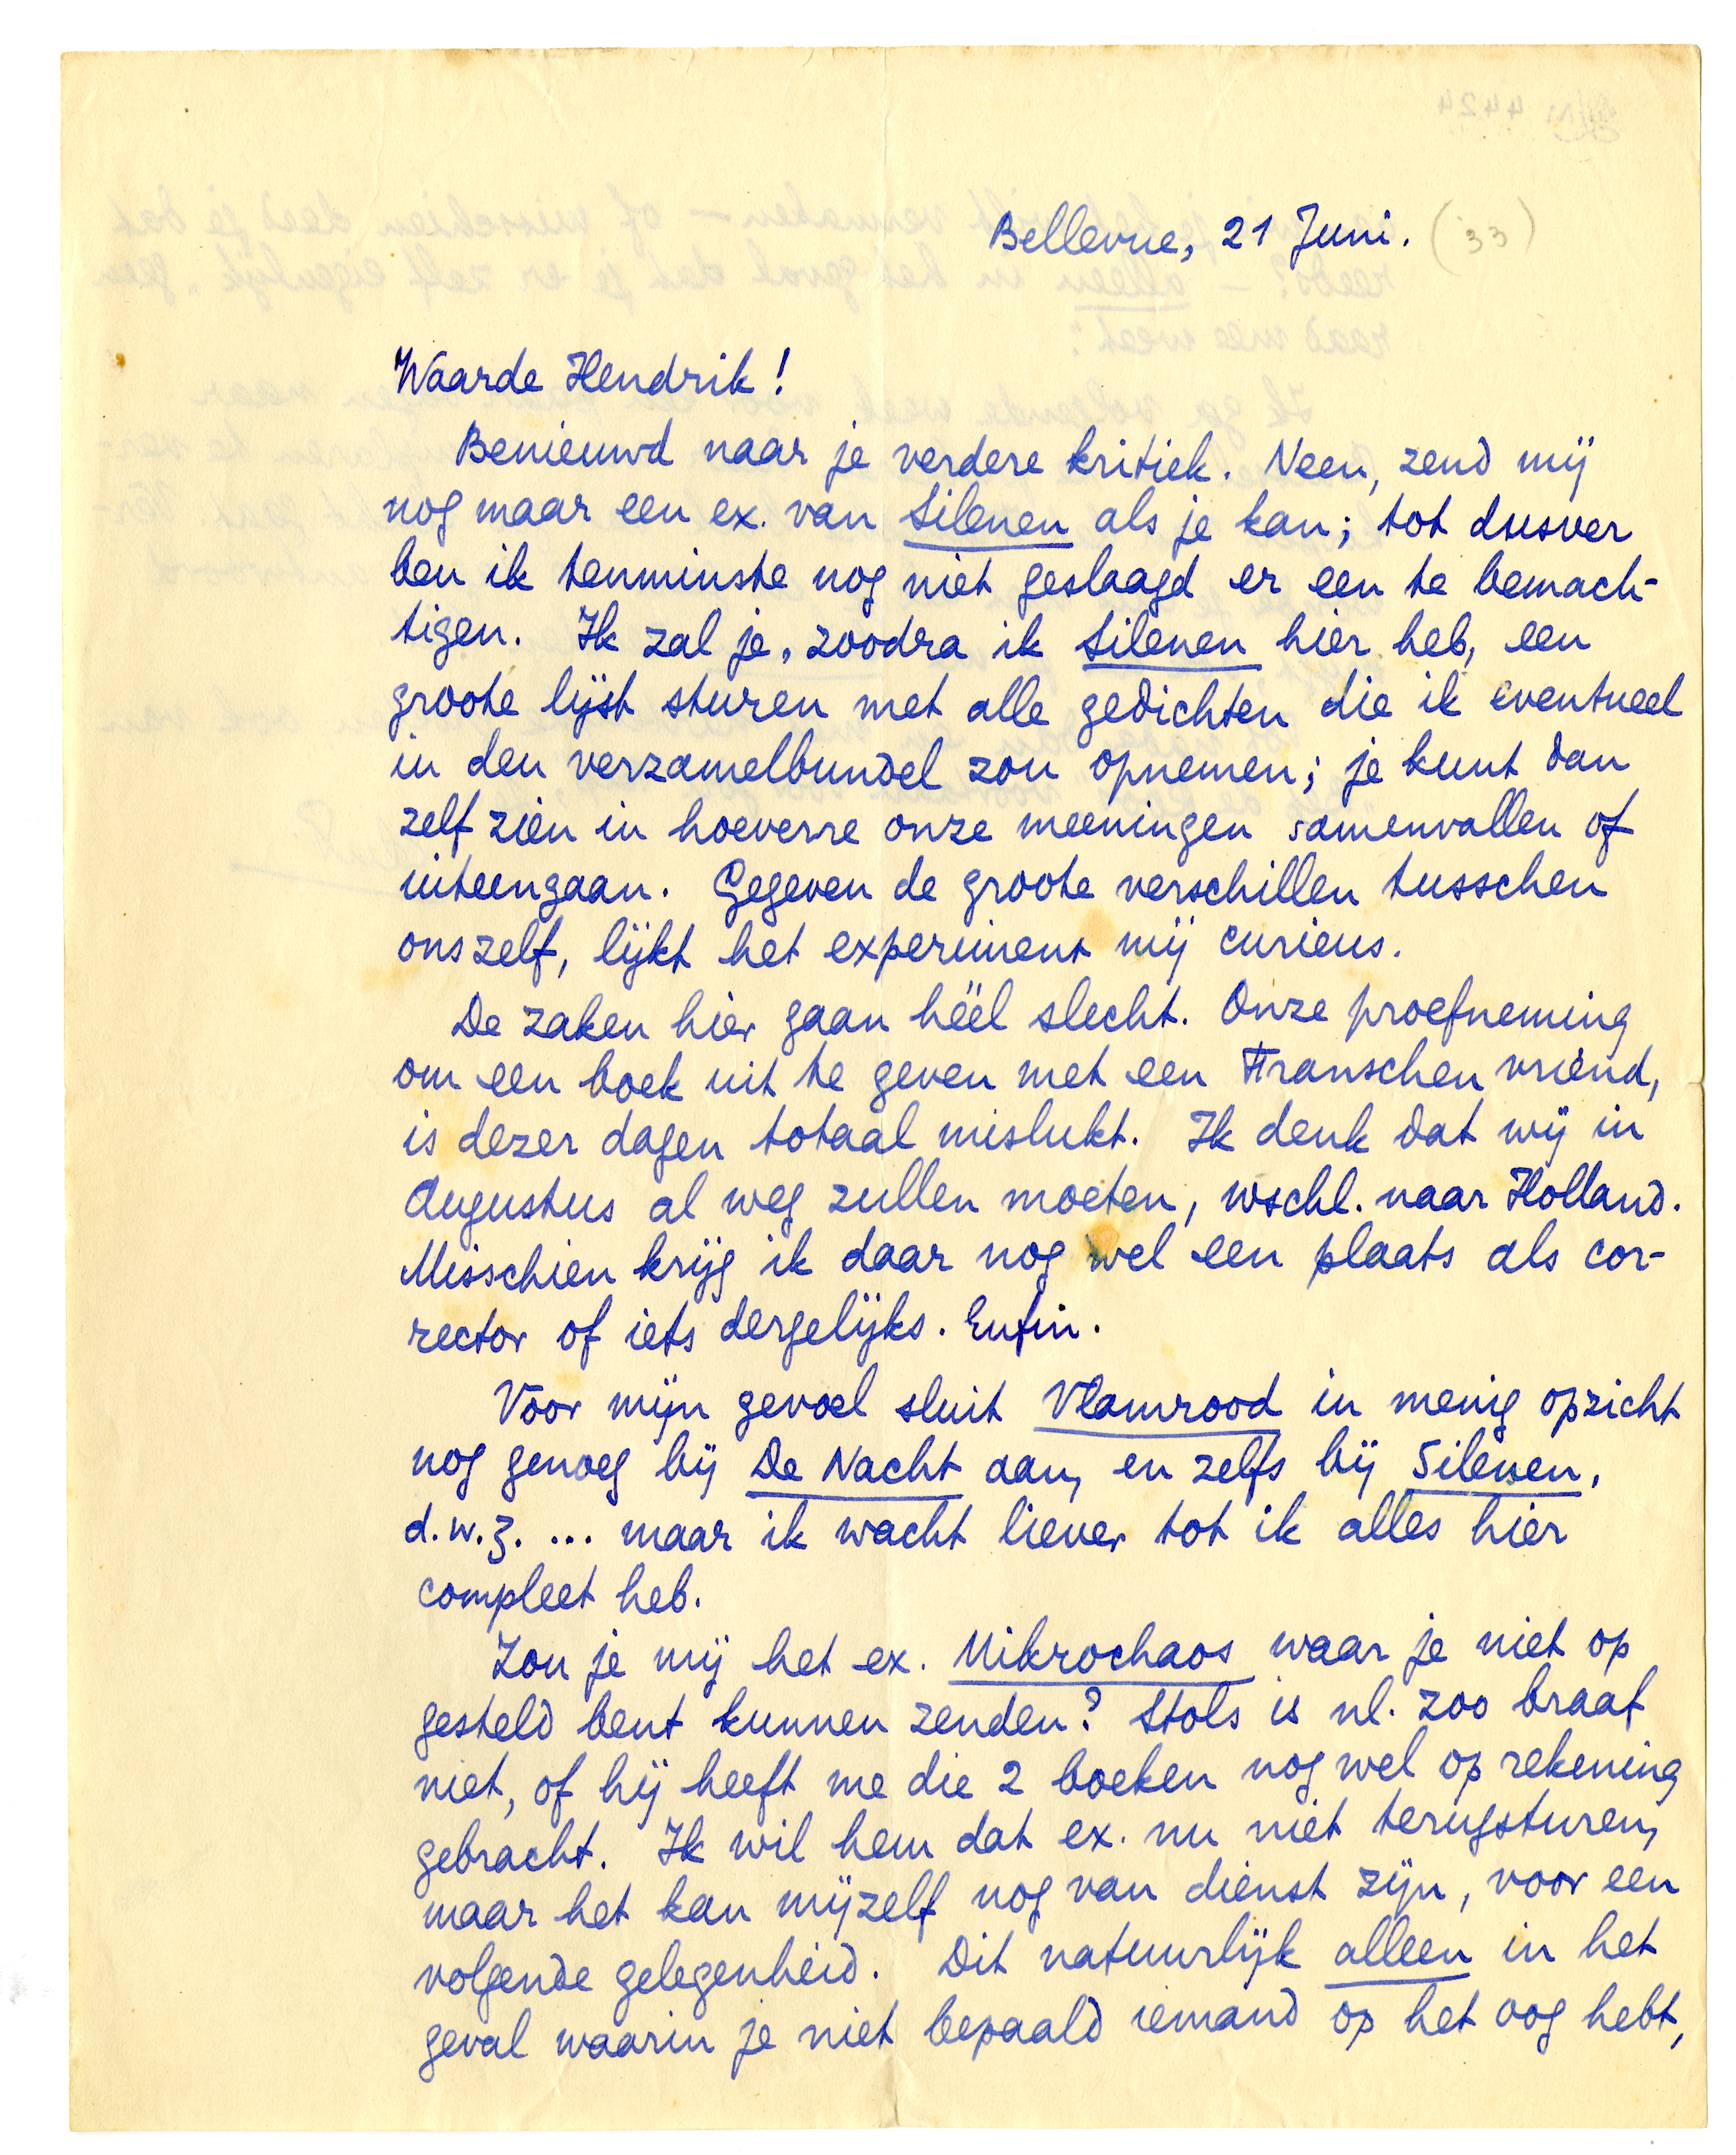 Bellevue, 21 Juni. (33)
Waarde Hendrik!
Benieuwd naar je verdere kritiek. Neen, zend mij
nog maar een ex. van Silenen als je kan; tot dusver
ben ik tenminste nog niet geslaagd er een te bemach-
tigen. Ik zal je, zoodra ik Silenen hier heb, een
groote lijst sturen met alle gedichten die ik eventueel
in den verzamelbundel zou opnemen; je kunt dan
zelf zien in hoeverre onze meeningen samenvallen of
uiteengaan. Gegeven de groote verschillen tusschen
onszelf, lijkt het experiment mij curieus.
De zaken hier gaan héél slecht. Onze proefneming
om een boek uit te geven met een Franschen vriend,
is dezer dagen totaal mislukt. Ik denk dat wij in
Augustus al weg zullen moeten, wschl. naar Holland.
Misschien krijg ik daar nog wel een plaats als cor-
rector of iets dergelijks. Enfin.
Voor mijn gevoel sluit Vlamrood in menig opzicht
nog genoeg bij De Nacht aan, en zelfs bij Silenen,
d.w.z. ... maar ik wacht liever tot ik alles hier
compleet heb.
Zou je mij het ex. Mikrochaos waar je niet op
gesteld bent kunnen zenden? Stols is nl. zoo braaf
niet, of hij heeft me die 2 boeken nog wel op rekening
gebracht. Ik wil hem dat ex. nu niet terugsturen,
maar het kan mijzelf nog van dienst zijn, voor een
volgende gelegenheid. Dit natuurlijk alleen in het
geval waarin je niet bepaald iemand op het oog hebt,